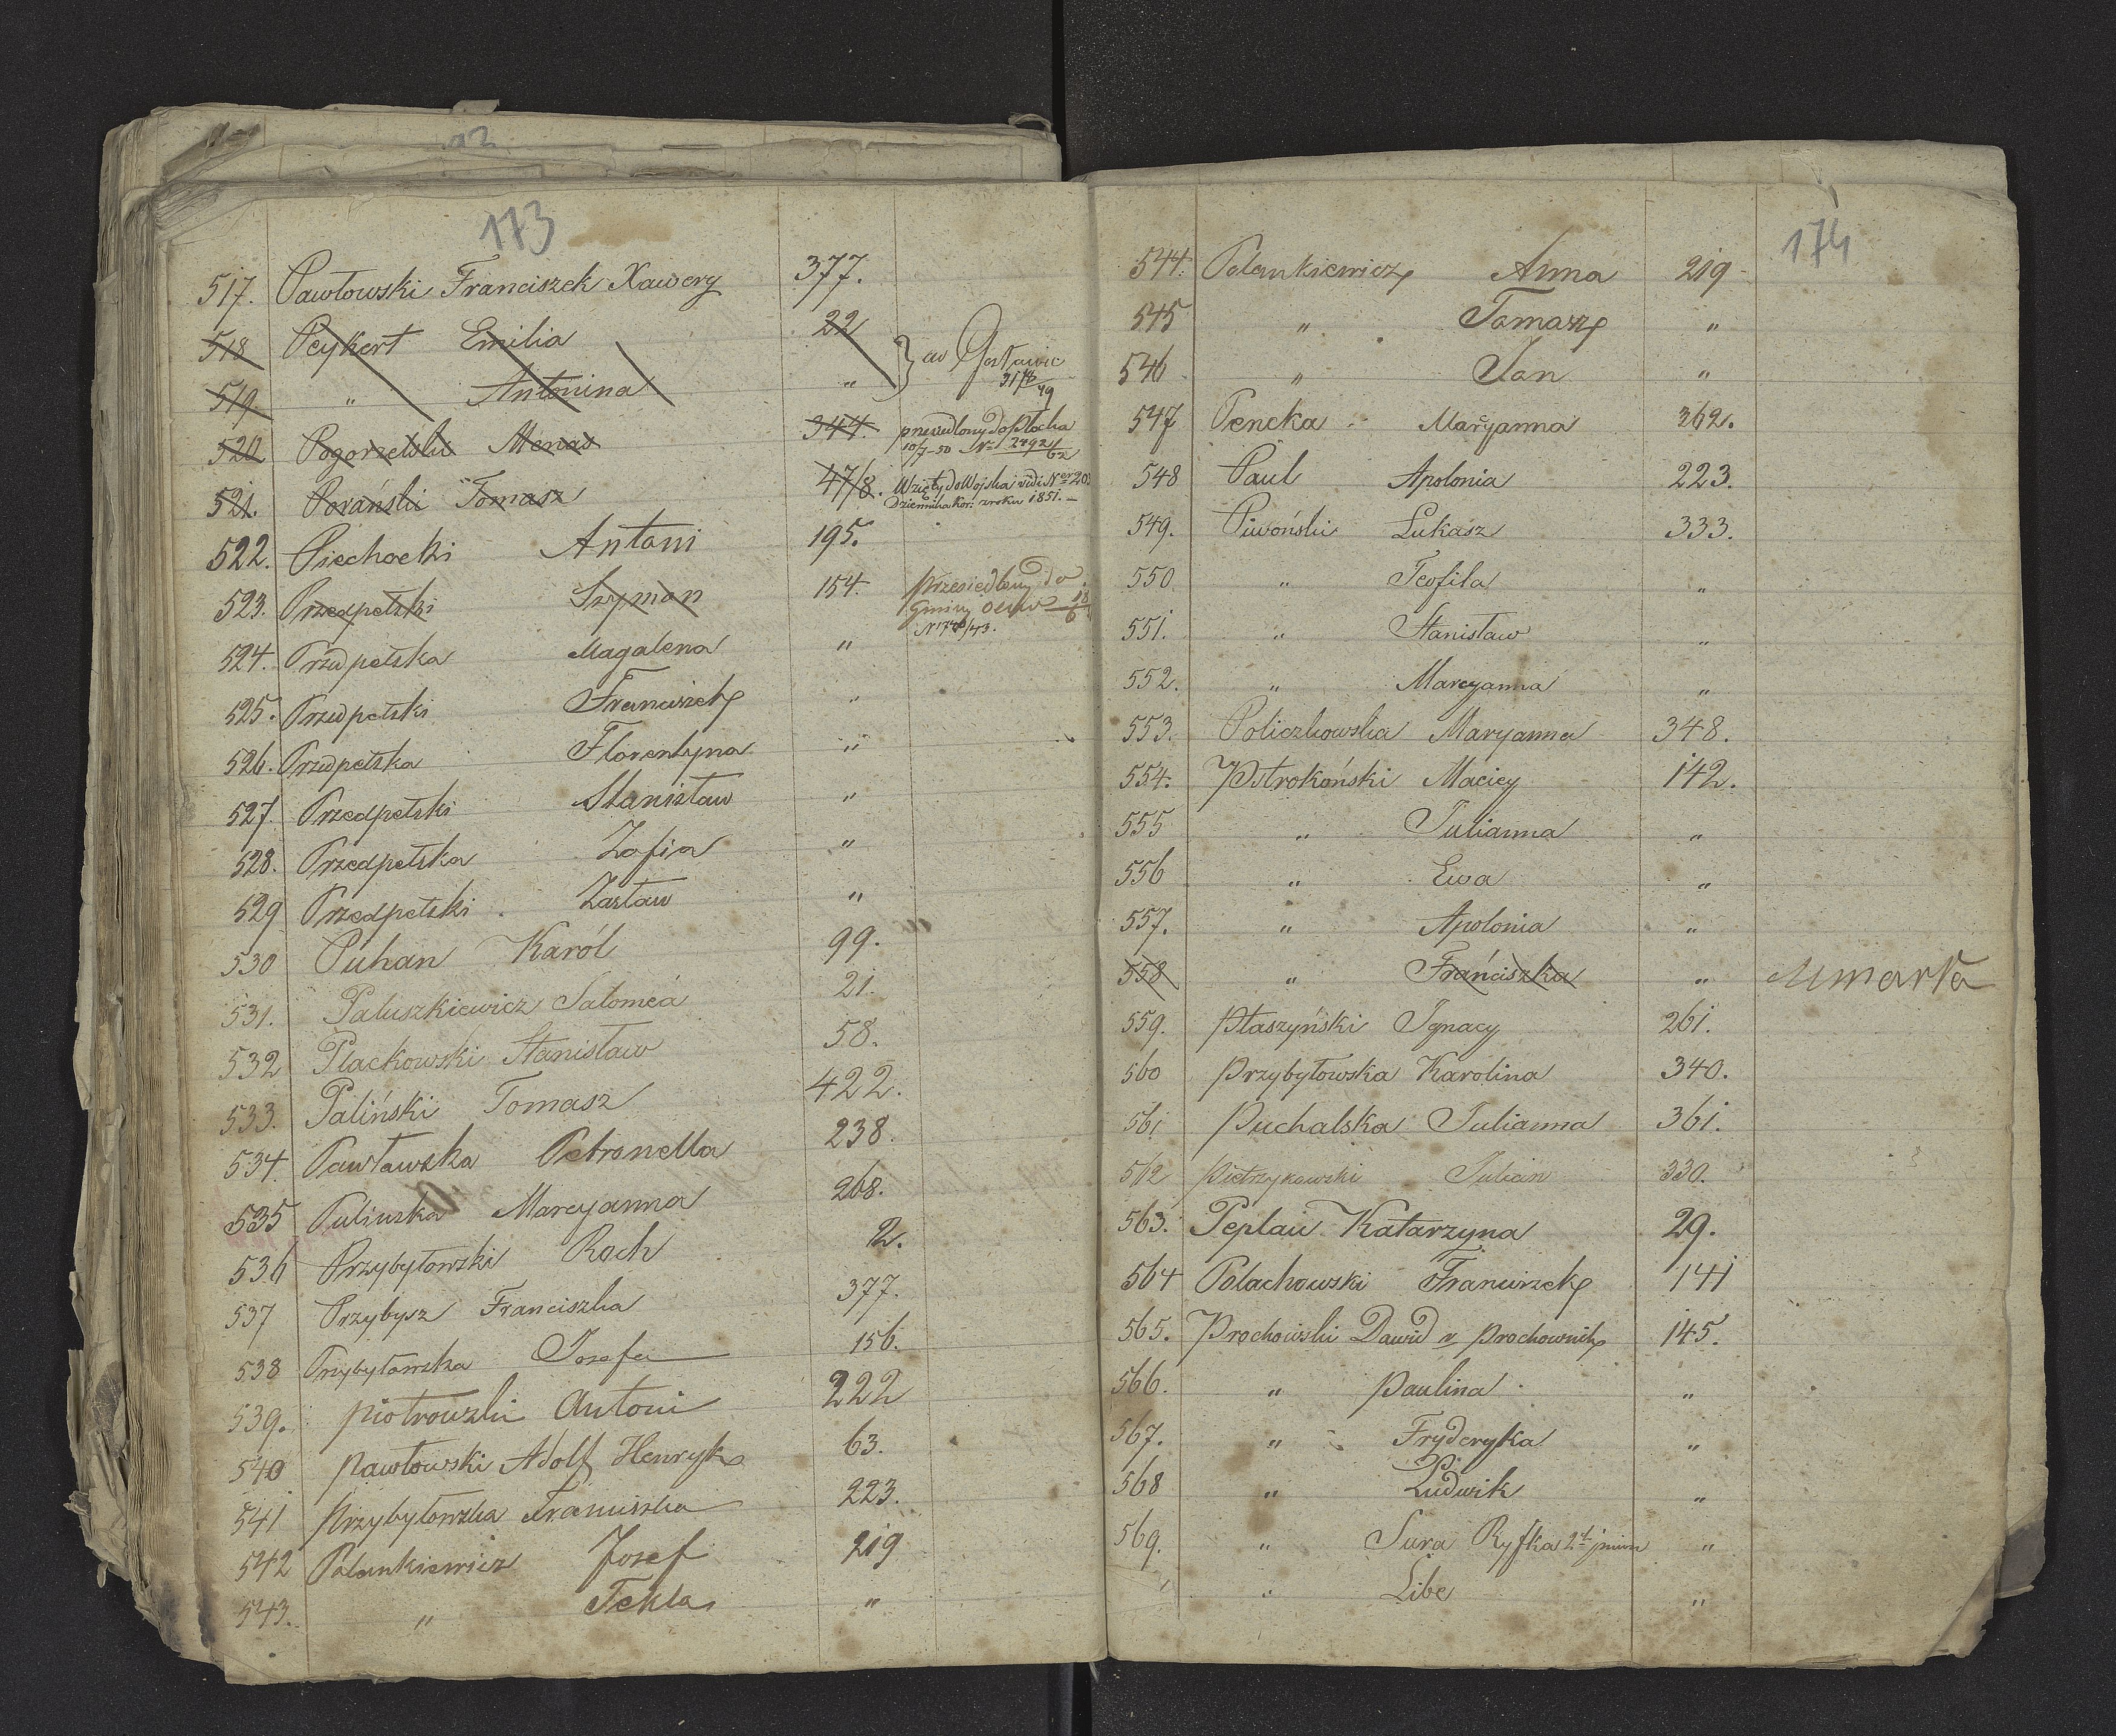 173
517. Pawłowski Franciszek Xawery 377.
518 Peykert Emilia 22
519. " Antonina " } w Gosławic 31/8 49
520 Pogorzelski Menas 344. przesiedlony do Płocka
10/7-50 No 2792/62
521. Porański Tomasz 47/8. Wzięty do Wojska vidi Ner 20
Dziennika Kor: z roku 1851. —
522. Piechocki Antoni 195.
523. Przedpełski Szyman 154. Przesiedlony do
Gminy
524. Przedpełska Magalena "
525. Przedpełski Franciszek "
526. Przedpełska Florentyna "
527. Przedpełski Stanisław "
528. Przedpełska Zofia "
529 Przedpełski Zasław "
530 Puhan Karól 99.
531. Paluszkiewicz Salomea 21.
532 Plackowski Stanisław 58.
533. Paliński Tomasz 422.
534. Pawławska Petronella 238.
535 Pulinska Maryanna 268.
536 Przybyłowski Roch 2.
537 Przybysz Franciszka 377.
538 Przybyłowska Josefa 156.
539. Piotrowski Antoni 222
540 Pawłowski Adolf Henryk 63.
541 Przybyłowska Franciszka 223.
542 Polankiewicz Jozef 219
543. " Tekla "
174
544. Polankiewicz Anna 219
545 " Tomasz "
546 " Jan "
547 Pencka Maryanna 362.
548 Paul Apolonia 223.
549. Piwoński Łukasz 333.
550 " Teofila "
551. " Stanisław "
552. " Maryanna "
553. Policzkowska Maryanna 348.
554. Pstrokoński Maciey 142.
555 " Julianna "
556 " Ewa "
557. " Apolonia "
558 " Franciszka " umarła
559. Ptaszyński Ignacy 261.
560 Przybyłowska Karolina 340.
561 Puchalska Julianna 361.
562 Pietrzykowski Julian 330.
563. Peplau Katarzyna 29.
564 Polachowski Franciszek 141
565. Prochowski Dawid v Prochownik 145.
566. " Paulina "
567. " Fryderyka "
568 " Ludwik "
569. " Sura Ryfka 2ch imion "
" Libe "